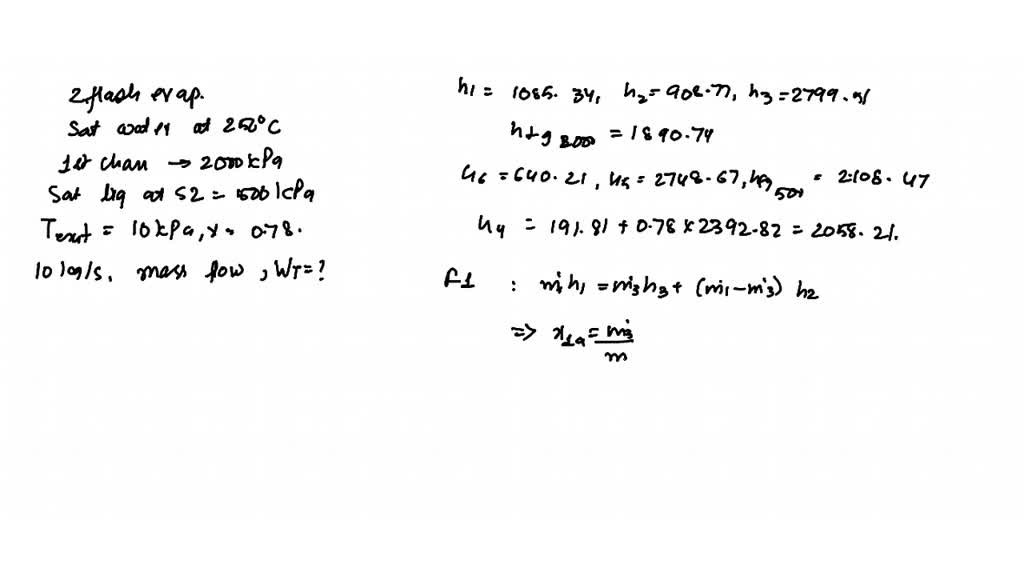 2 flash evap.
Sat water at 250°C
1st cham → 2000 kPa
Sat liq at S2 = 500 kPa
Texit = 10 kPa, x = 0.78.
10 kg/s, mass flow, WT = ?
h1 = 1085.34, h2 = 908.77, h3 = 2799.51
hfg 2000 = 1890.74
h6 = 640.21, h5 = 2748.67, hfg 500 = 2108.47
h4 = 191.81 + 0.78 × 2392.82 = 2058.21.
F1 : ṁ1 h1 = ṁ3 h3 + (ṁ1 - ṁ3) h2
=> x1a = ṁ3/m